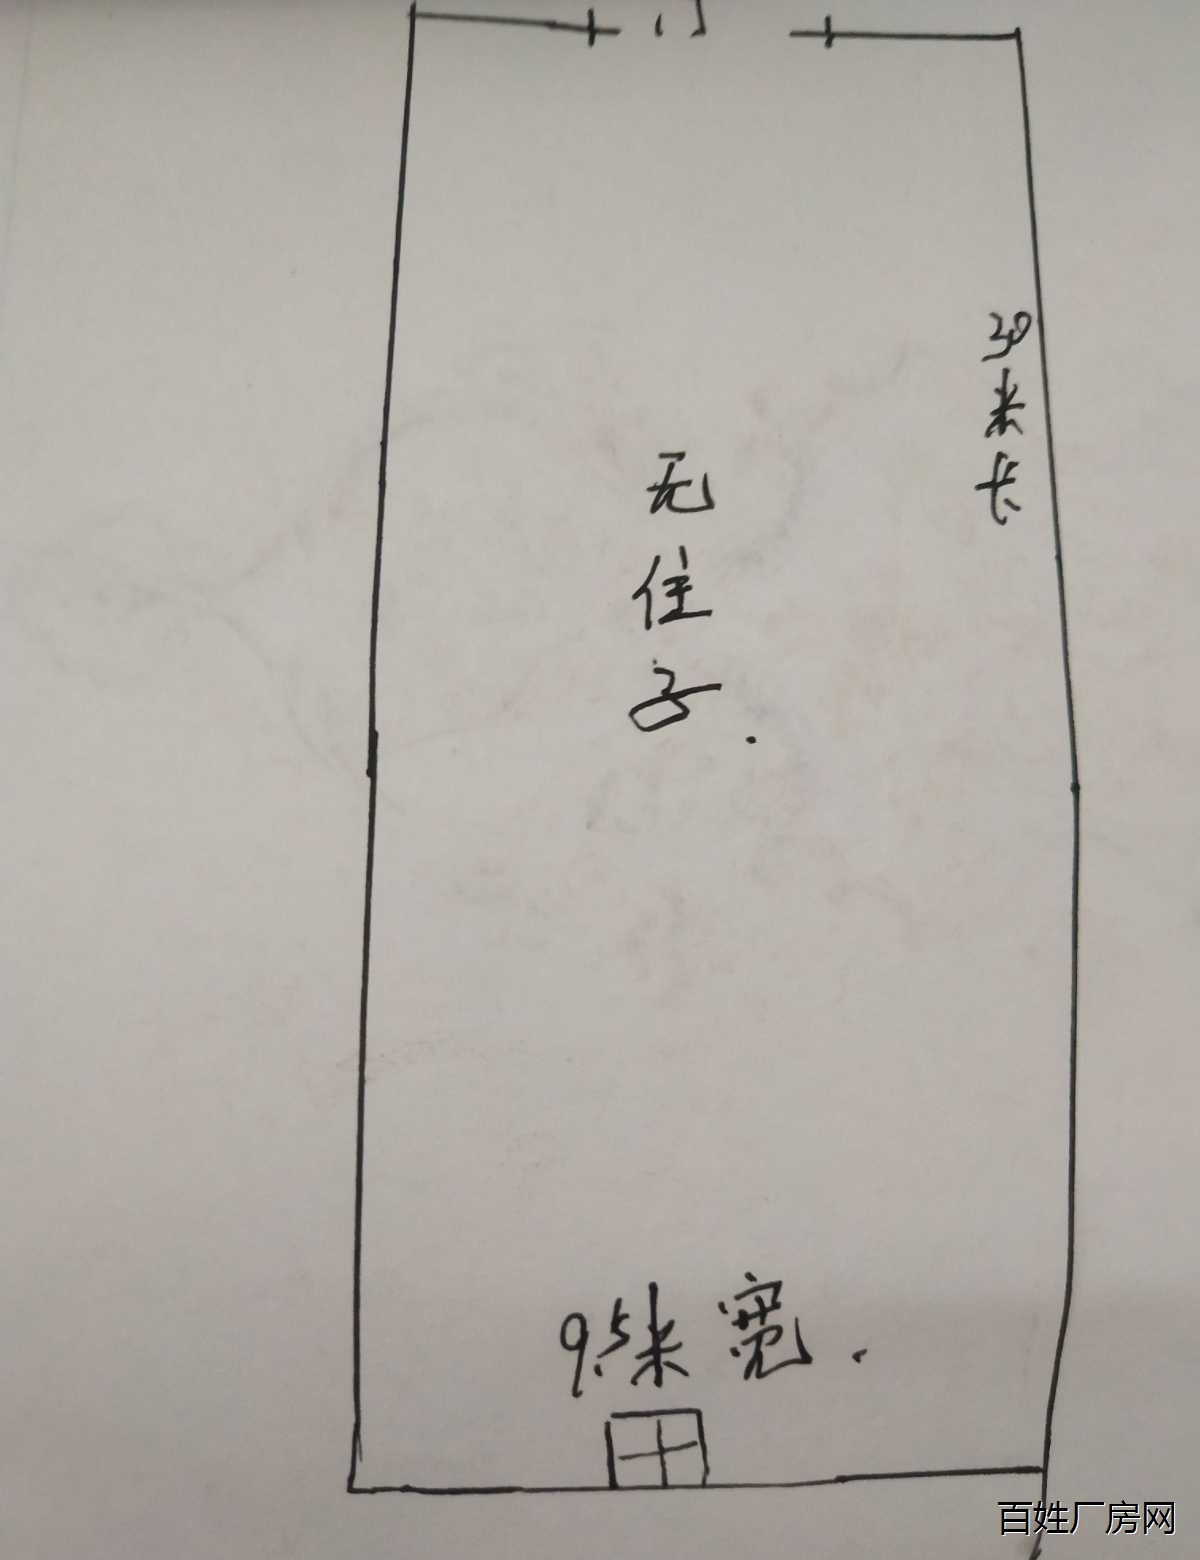 门
30米长
无住子.
9.5米宽.
百姓厂房网